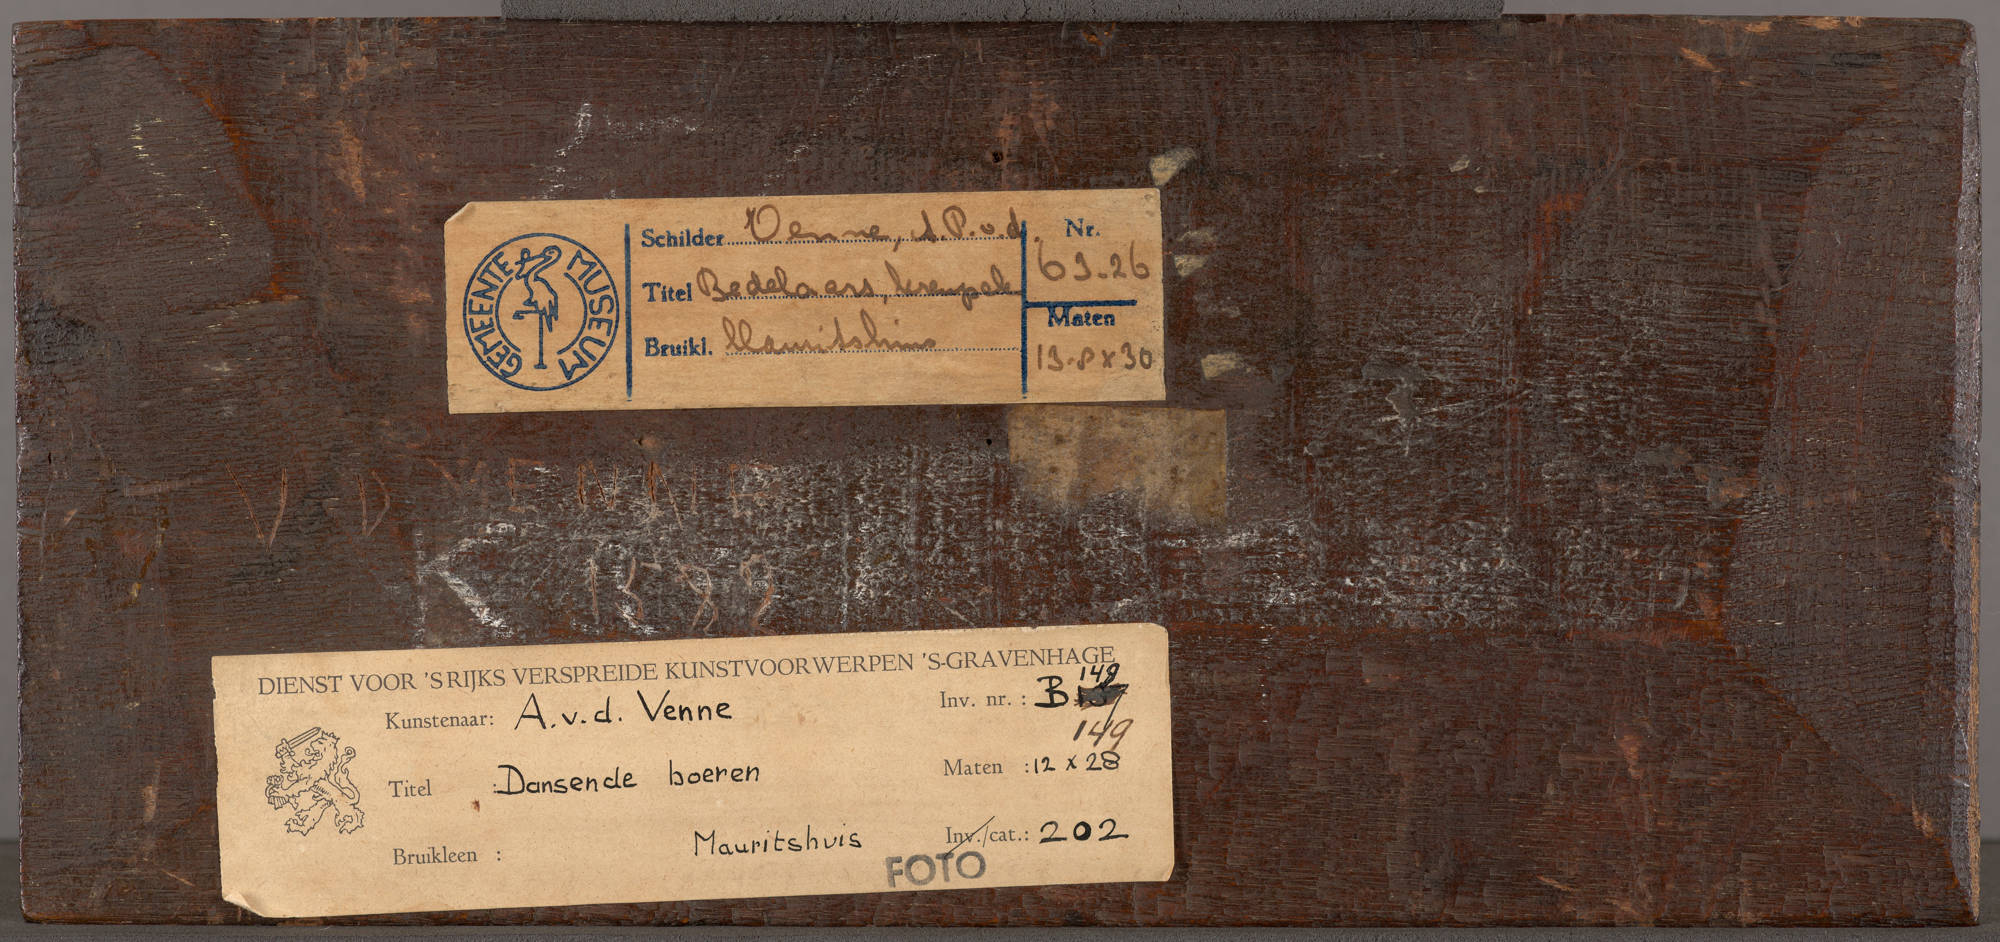 GEMEENTE MUSEUM
Schilder Venne, A.P.v.d.
Nr.
63-26
Titel Bedelaars, kreupele
Maten
Bruikl. Mauritshuis
13.8 x 30
V D VENNE
1589
DIENST VOOR 'S RIJKS VERSPREIDE KUNSTVOORWERPEN 'S-GRAVENHAGE
149
Kunstenaar: A.v.d. Venne
Inv. nr. : B
149
Titel : Dansende boeren
Maten : 12 x 28
Bruikleen : Mauritshuis
Inv./cat.: 202
FOTO